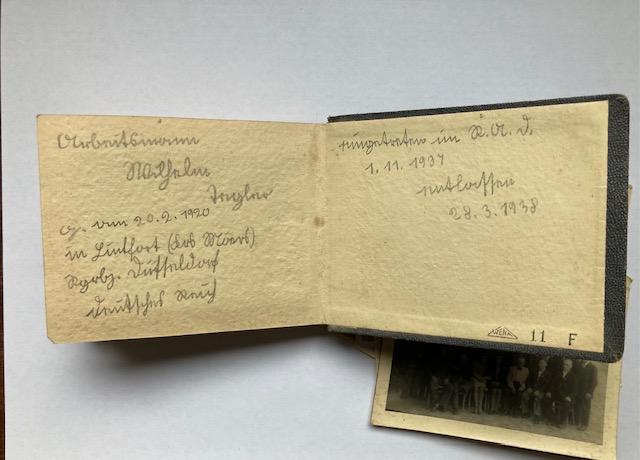 Arbeitsmann
Wilhelm
Tegler
g. am 20.2.1920
in Lintfort (Krs Mörs)
Rgbz. Düsseldorf
Deutsches Reich
eingetreten im R.A.D.
1.11.1937
entlassen
28.3.1938
11 F